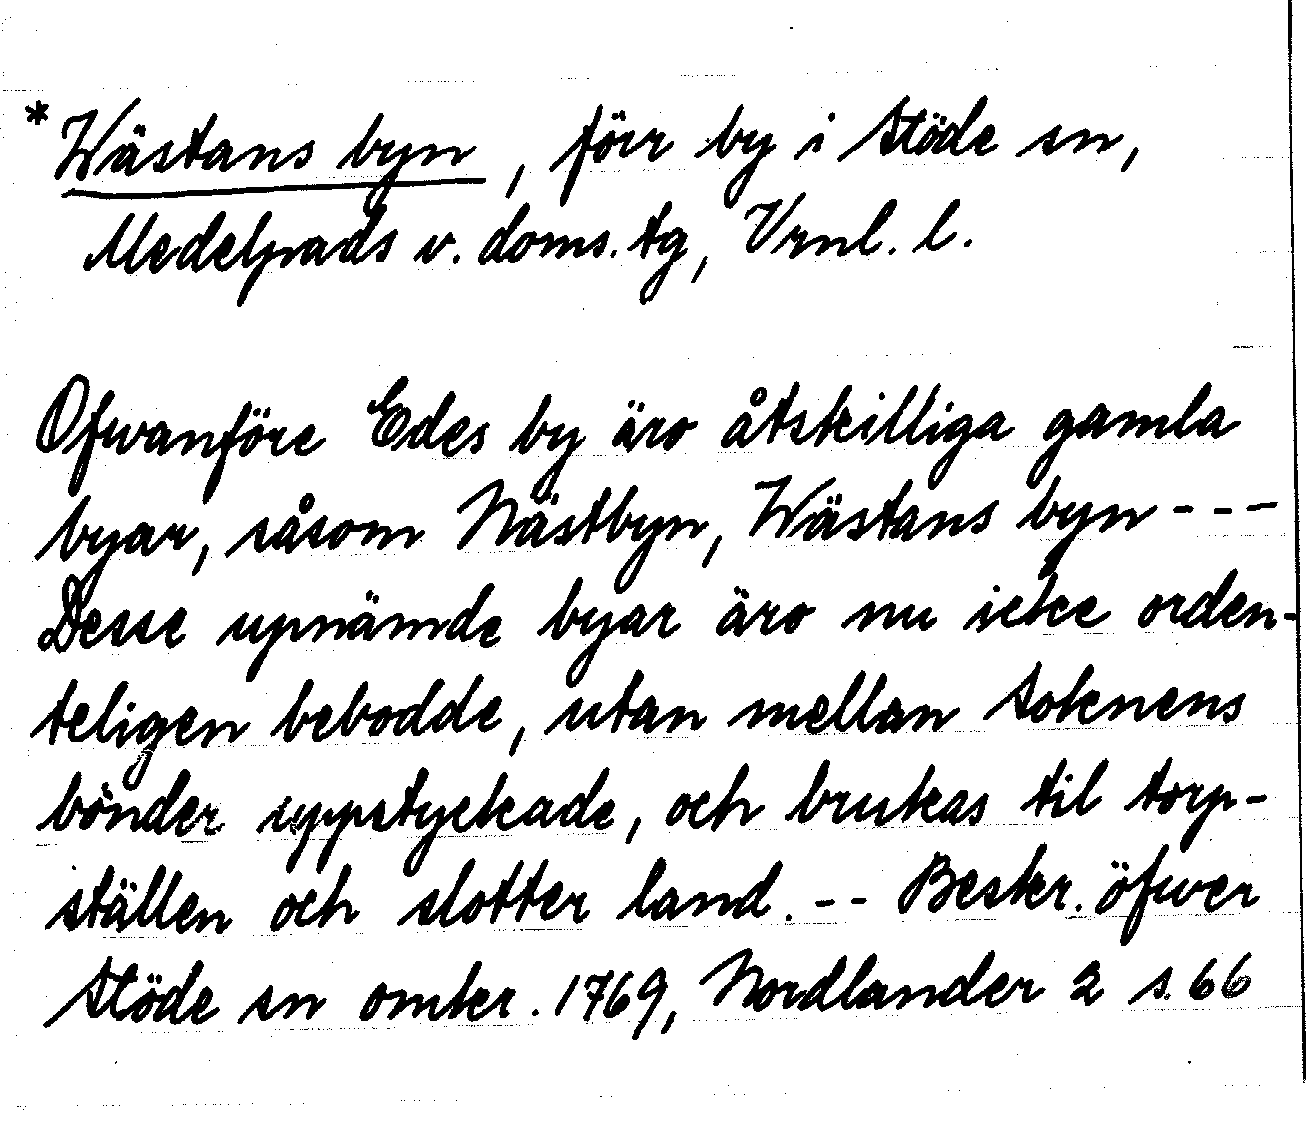 * Wästans byn, förr by i Stöde sn,
Medelpads v. doms. tg, Vrnl. l.
Ofwanföre Edes by äro åtskilliga gamla
byar, såsom Nästbyn, Wästans byn ---
Desse upnämde byar äro nu icke orden-
teligen bebodde, utan mellan Soknens
bönder uppstyckade, och brukas til torp-
ställen och slotter land. -- Beskr. öfwer
Stöde sn omkr. 1769, Nordlander 2 s. 66